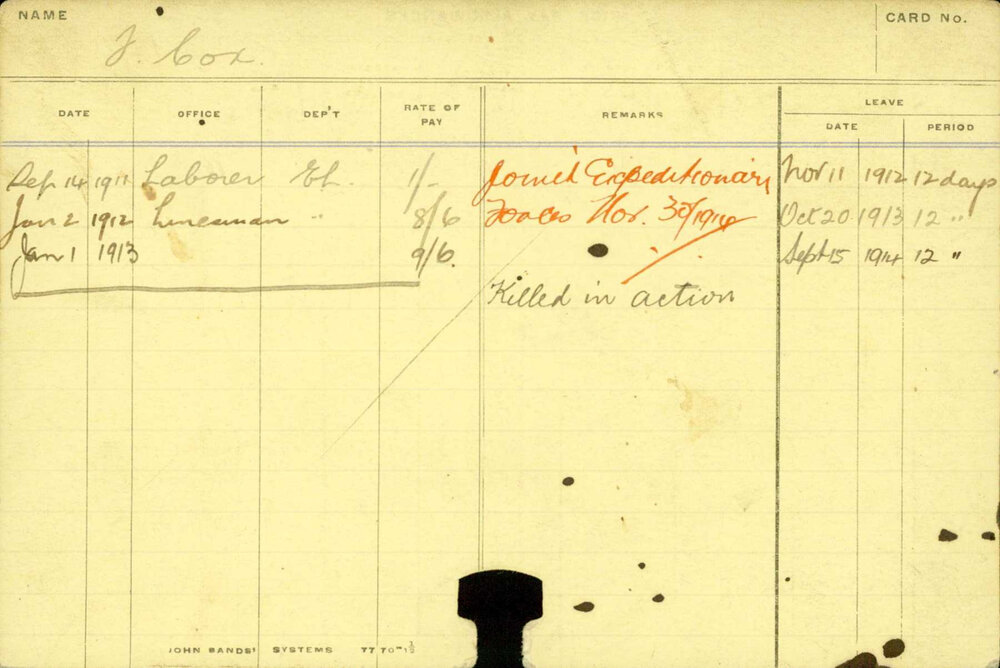 NAME
CARD No.
Cox.
DATE OFFICE DEP'T RATE OF PAY REMARKS LEAVE
DATE PERIOD
Sep 14 1911 Laborer El. 1/- Join'd Expeditionary Nov 11 1912 12 days
Jan 2 1912 Lineman " 8/6 Forces Nov. 30/1914 Oct 20 1913 12 "
Jan 1 1913 9/6. Sept 15 1914 12 "
Killed in action
JOHN SANDS' SYSTEMS